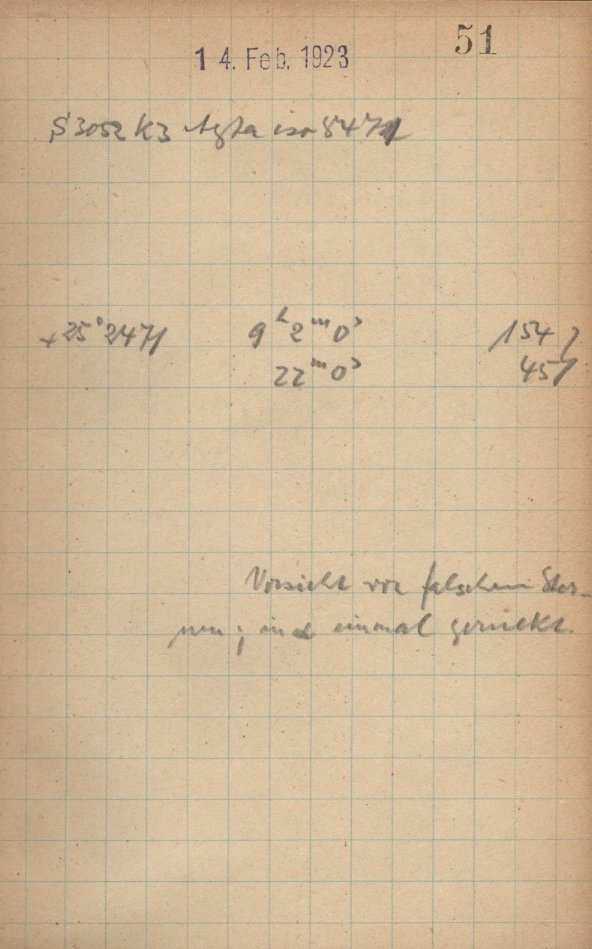 51
14. Feb. 1923
S 3052 K3 Agfa iso 8471
+25°2471 9ʰ2ᵐ0ˢ 154
22ᵐ0ˢ 45
Vorsicht vor falschem Ster-
nen; in α einmal geruckt.